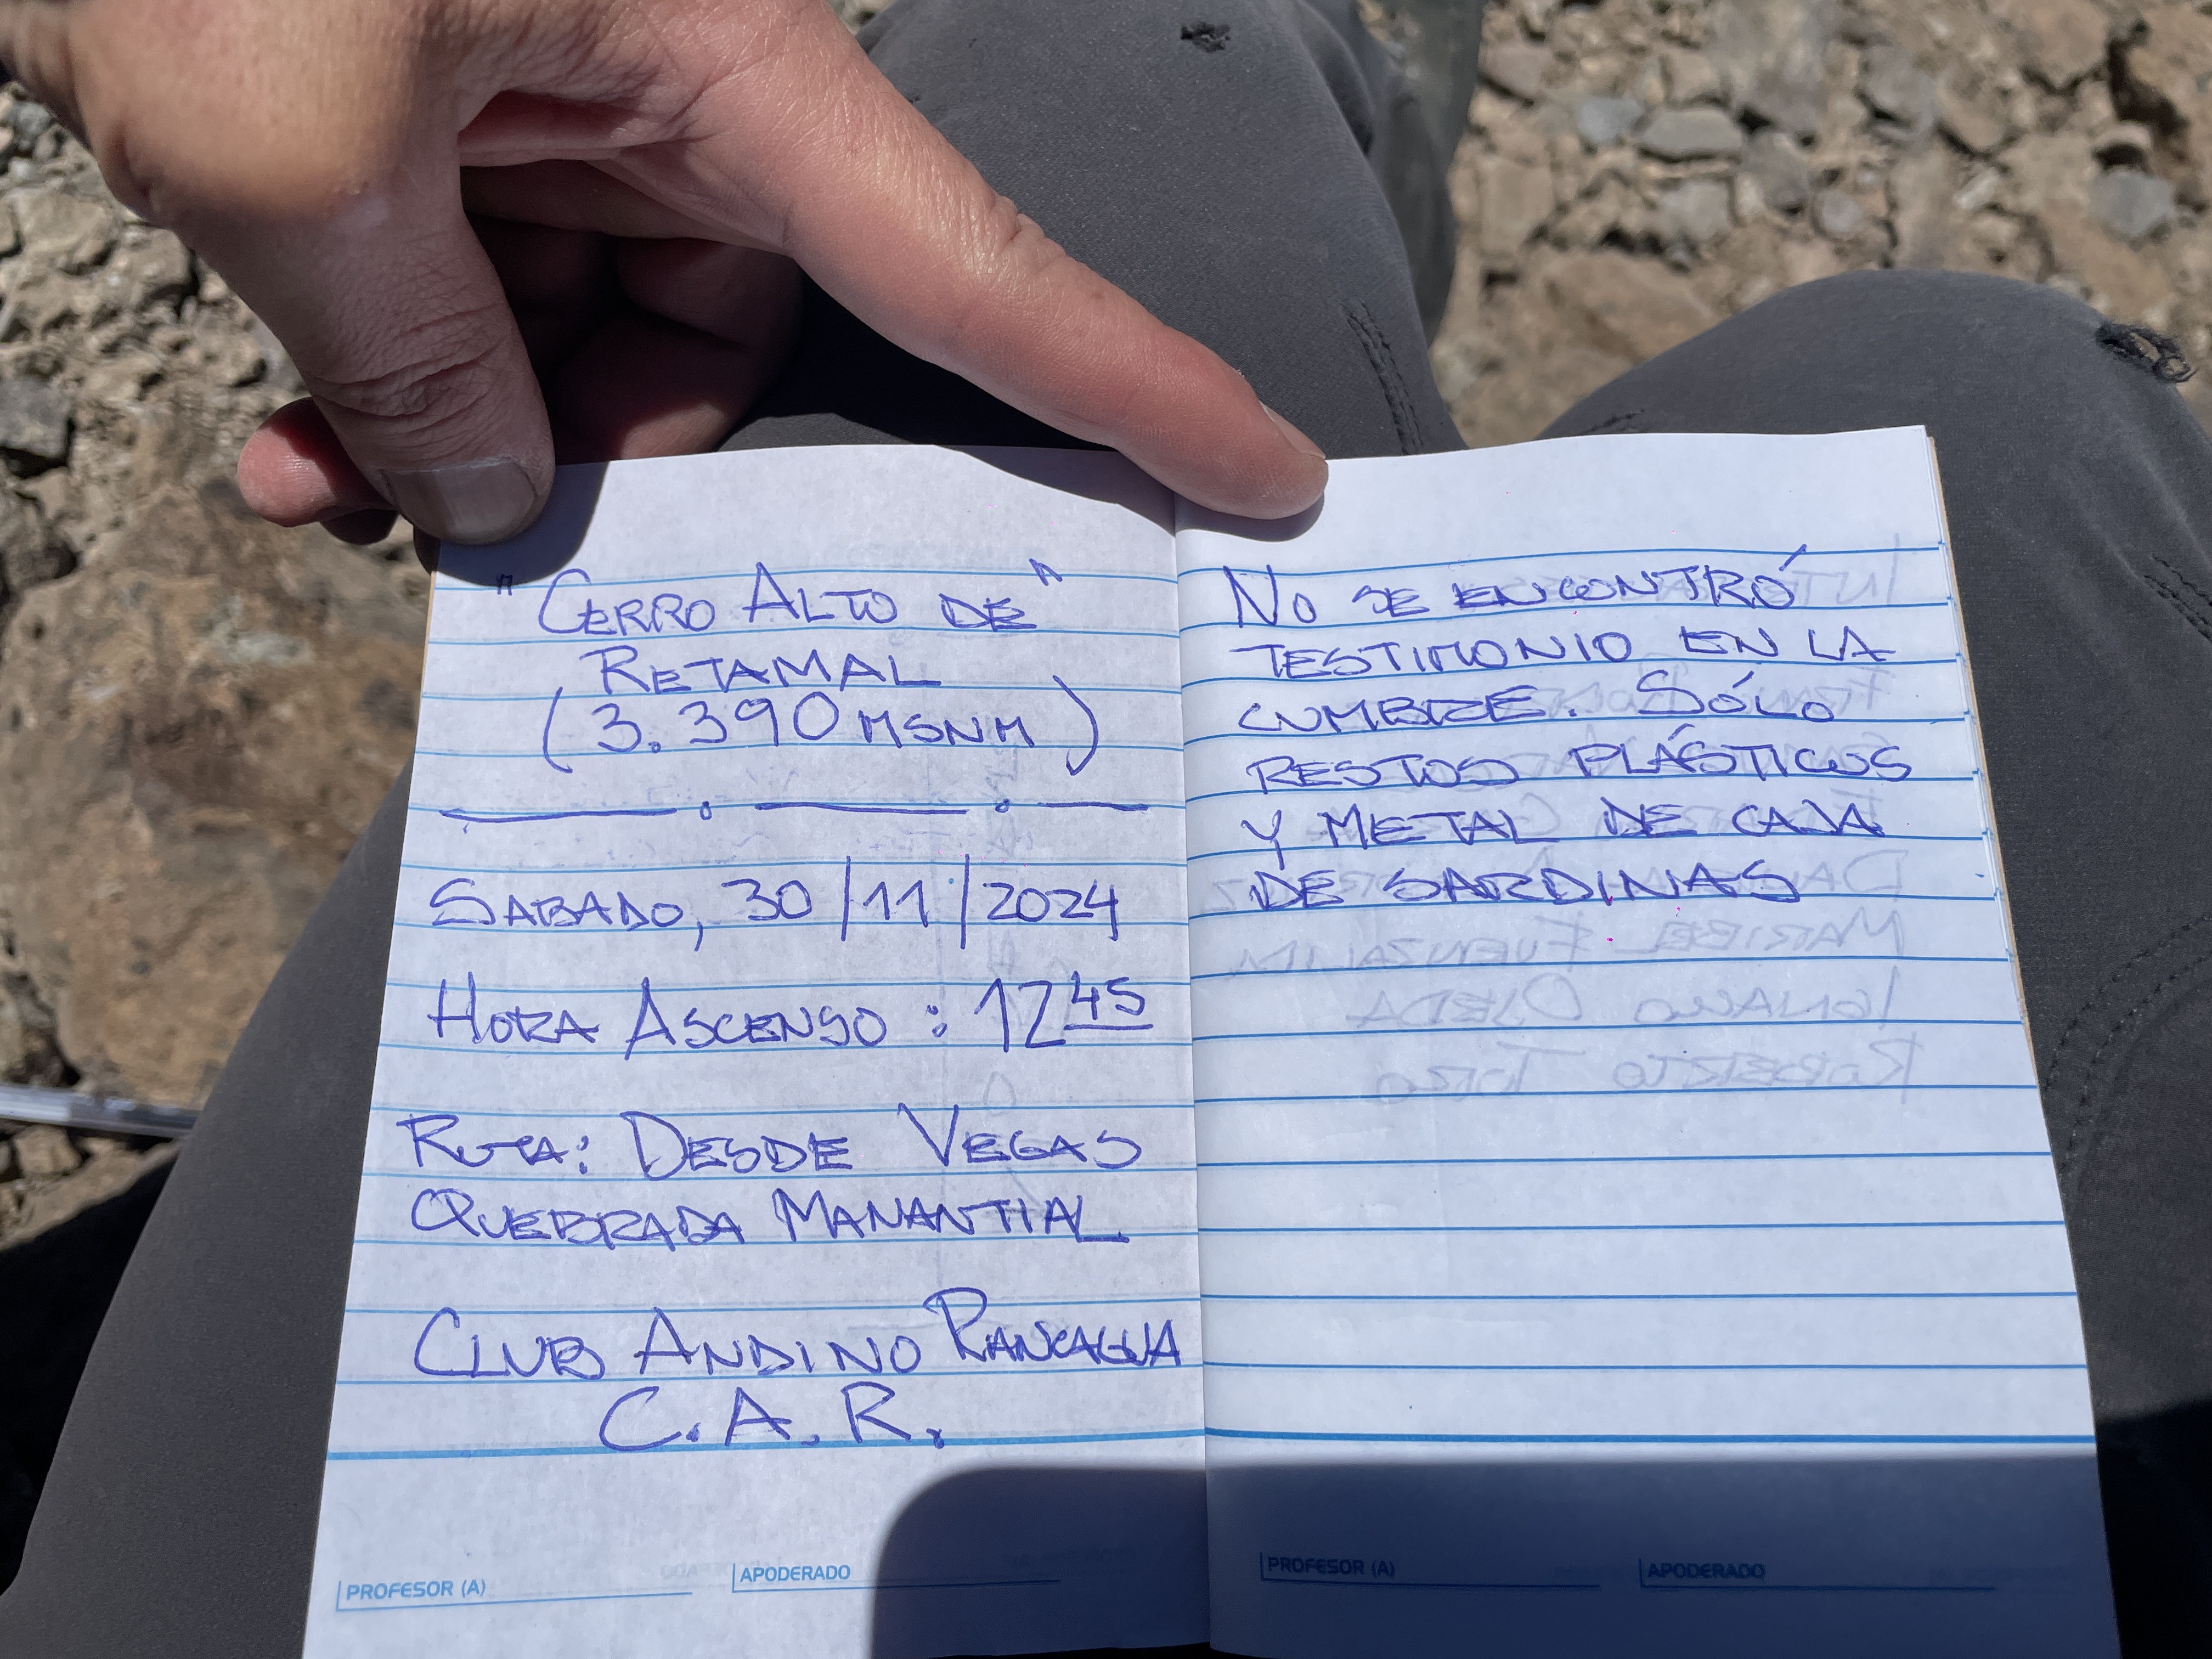 "CERRO ALTO DE"
RETAMAL
(3.390 MSNM)
SABADO, 30/11/2024
HORA ASCENSO: 12 45
RUTA: DESDE VEGAS
QUEBRADA MANANTIAL
CLUB ANDINO RANCAGUA
C.A.R.
PROFESOR (A) APODERADO
NO SE ENCONTRÓ
TESTIMONIO EN LA
CUMBRE. SÓLO
RESTOS PLÁSTICOS
Y METAL DE CAJA
DE SARDINAS
MARIBEL FUENZALIDA
IGNACIO OJEDA
ROBERTO TORO
PROFESOR (A) APODERADO